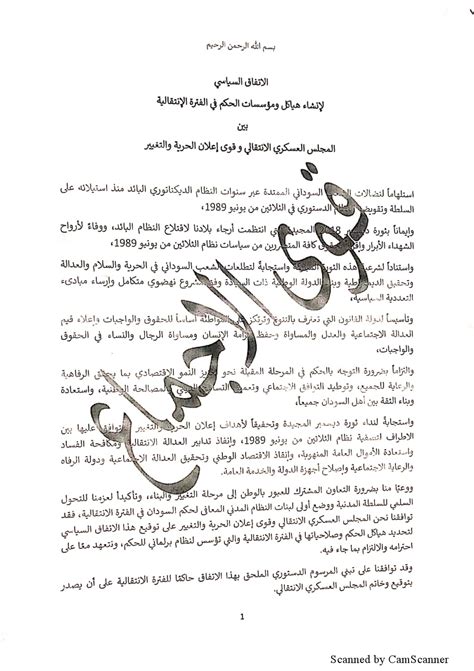 بسم الله الرحمن الرحيم
الاتفاق السياسي
لإنشاء هياكل ومؤسسات الحكم في الفترة الإنتقالية
بين
المجلس العسكري الانتقالي و قوى إعلان الحرية والتغيير
قوى الاجماع
استلهاماً لنضالات السوداني الممتدة عبر سنوات النظام الديكتاتوري البائد منذ استيلائه على
السلطة وتقويض الدستوري في الثلاثين من يونيو 1989،
وإيماناً بثورة المجيدة التي انتظمت أرجاء بلادنا لاقتلاع النظام البائد، ووفاءً لأرواح
الشهداء الأبرار كافة المتضررين من سياسات نظام الثلاثين من يونيو 1989،
واستناداً لشرعية هذه الثورة واستجابةً لتطلعات الشعب السوداني في الحرية والسلام والعدالة
وتحقيق وبناء الدولة الوطنية ذات السيادة وفق مشروع نهضوي متكامل وإرساء مبادىء
التعددية السياسية،
وتأسيساً لدولة القانون التي تعترف بالتنوع وترتكز على المواطنة أساساً للحقوق والواجبات وإعلاء قيم
العدالة الاجتماعية والعدل والمساواة وحفظ كرامة الإنسان ومساواة الرجال والنساء في الحقوق
والواجبات،
والتزاماً بضرورة التوجه بالحكم في المرحلة المقبلة نحو النمو الاقتصادي بما يحقق الرفاهية
والرعاية للجميع، وتوطيد التوافق الاجتماعي وتعميق المصالحة الوطنية، واستعادة
وبناء الثقة بين أهل السودان جميعاً،
واستجابةً لنداء ثورة ديسمبر المجيدة وتحقيقاً لأهداف إعلان الحرية والتغيير التوافق عليها بين
الاطراف لتصفية نظام الثلاثين من يونيو 1989، وإنفاذ تدابير العدالة الانتقالية ومكافحة الفساد
واستعادة الأموال العامة المنهوبة، وإنفاذ الاقتصاد الوطني وتحقيق العدالة الاجتماعية ودولة الرفاه
والرعاية الاجتماعية وإصلاح أجهزة الدولة والخدمة العامة.
ووعيًا منا بضرورة التعاون المشترك للعبور بالوطن إلى مرحلة التغيير والبناء، وتأكيداً لعزمنا للتحول
السلمي للسلطة المدنية ووضع أولى لبنات النظام المدني المعافى لحكم السودان في الفترة الانتقالية، فقد
توافقنا نحن المجلس العسكري الانتقالي وقوى إعلان الحرية والتغيير على توقيع هذا الاتفاق السياسي
لتحديد هياكل الحكم وصلاحياتها في الفترة الانتقالية والتي تؤسس لنظام برلماني للحكم، ونتعهد معًا على
احترامه والالتزام بما جاء فيه.
وقد توافقنا على تبني المرسوم الدستوري الملحق بهذا الاتفاق حاكمًا للفترة الانتقالية على أن يصدر
بتوقيع وخاتم المجلس العسكري الانتقالي.
1
Scanned by CamScanner